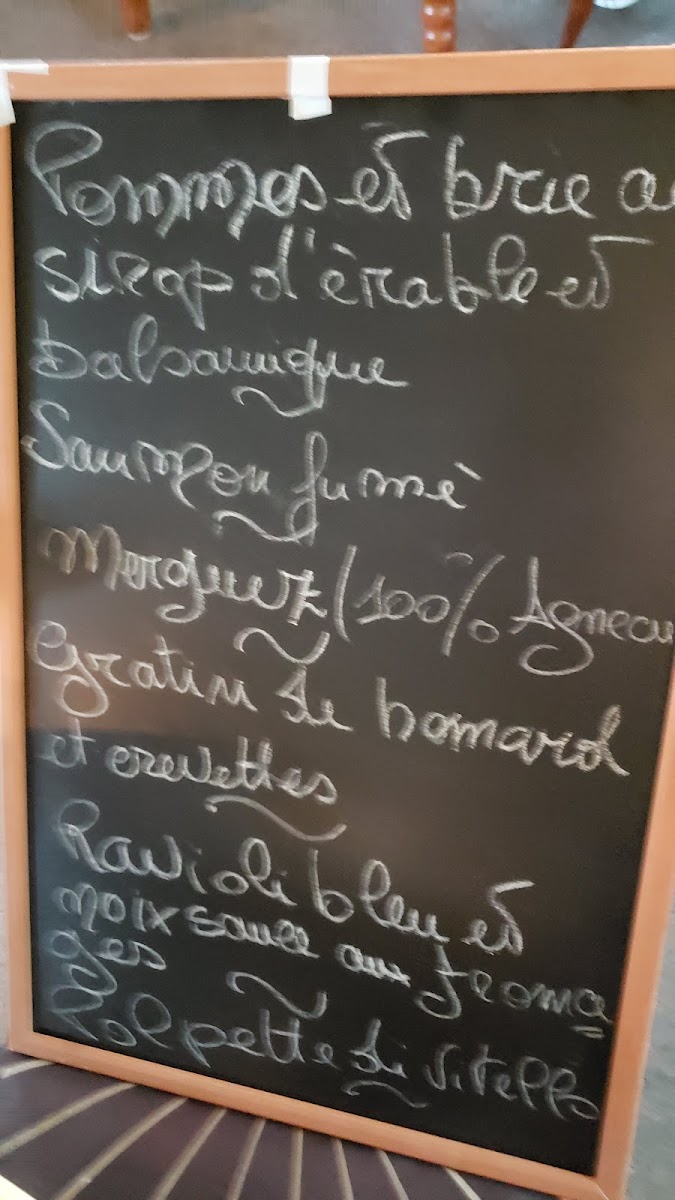 Pommes et brie au
sirop d'èrable et
balsamique
Saumon fumè
Merguez (100% Agneau
Gratin de homard
et crevettes
Ravioli bleu et
noix sauce aux froma
ges
Polpette di vitello